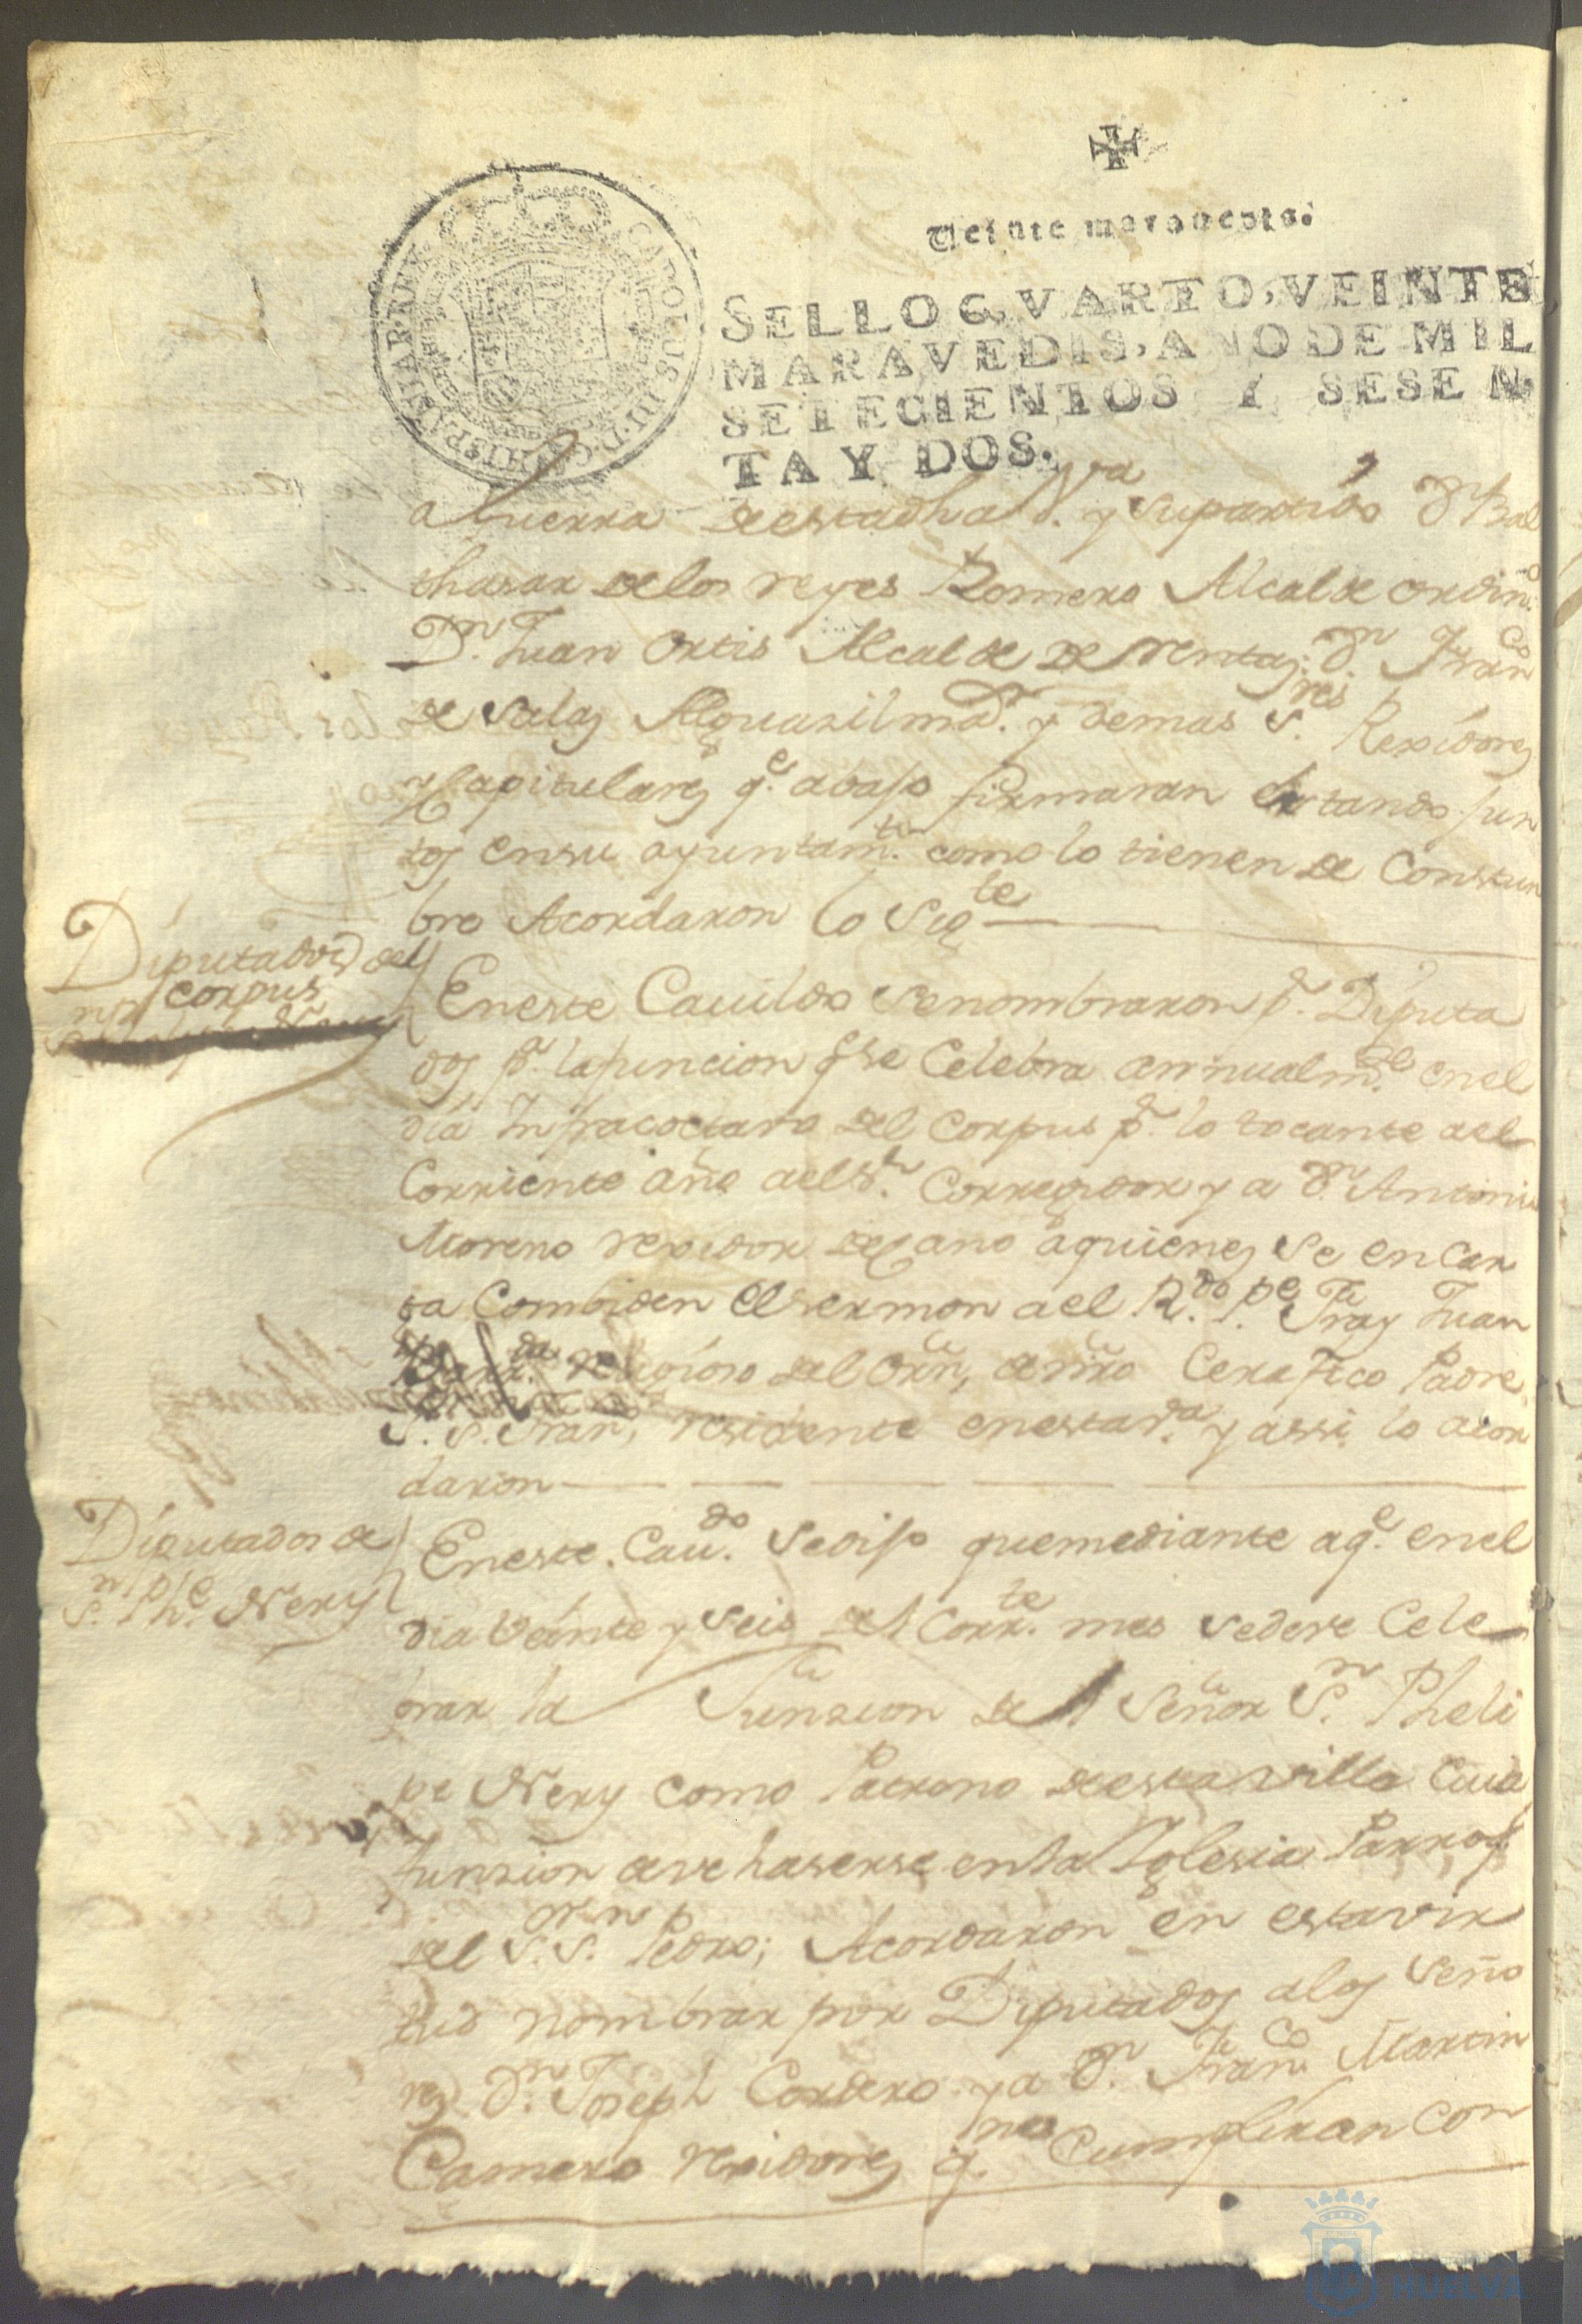 Veinte maravedis.
SELLO QVARTO, VEINTE
MARAVEDIS, AÑO DE MIL
SETECIENTOS Y SESEN
TA Y DOS.
CAROLUS III D. G. HISPANIAR. REX
a Guerra de esta dha va. y su partido Dn Bal
thasar de los reyes Romero Alcalde ordino.
Dn. Juan Ortis Alcalde de rentas; Dn. Franco
de Salas Alguasil mor. y demas Sres. Rexidores
y Capitulares qe. abajo firmaran estando jun
tos en su ayuntamto. como lo tienen de Constum
bre Acordaron lo Sigte
Diputados del
Corpus
En este Cauildo se nombraron pr. Diputa
dos pa. la funcion qe se Celebra annualmte. en el
dia Infraoctavo del Corpus pr. lo tocante ael
Corriente año ael Sr. Corregidor y a Dn Antonio
Moreno rexidor Decano a quienes se encar
ga Combiden el sermon ael Rdo. Pe. Fray Juan
religioso del Orn, de nro Cerafico Padre
S. S. Fran, residente en esta va. y assi lo acor
daron
Diputados de
Sn. Phe. Nery
En este Caudo. se dijo que mediante a qe. en el
dia Veinte y seis del Corrte. mes se deve Cele
brar la Funzion del Señor Sn. Pheli
pe Nery como Patrono de esta villa Cuia
funzion deve haserse en la Iglesia Parroql
del Sor. Sn. Pedro; Acordaron en esta vir
tud nombrar por Diputados a los Seño
res Dn. Joseph Cordero y a Dn. Franco Martin
Camero rexidores qnes. Cumpliran con
HUELVA